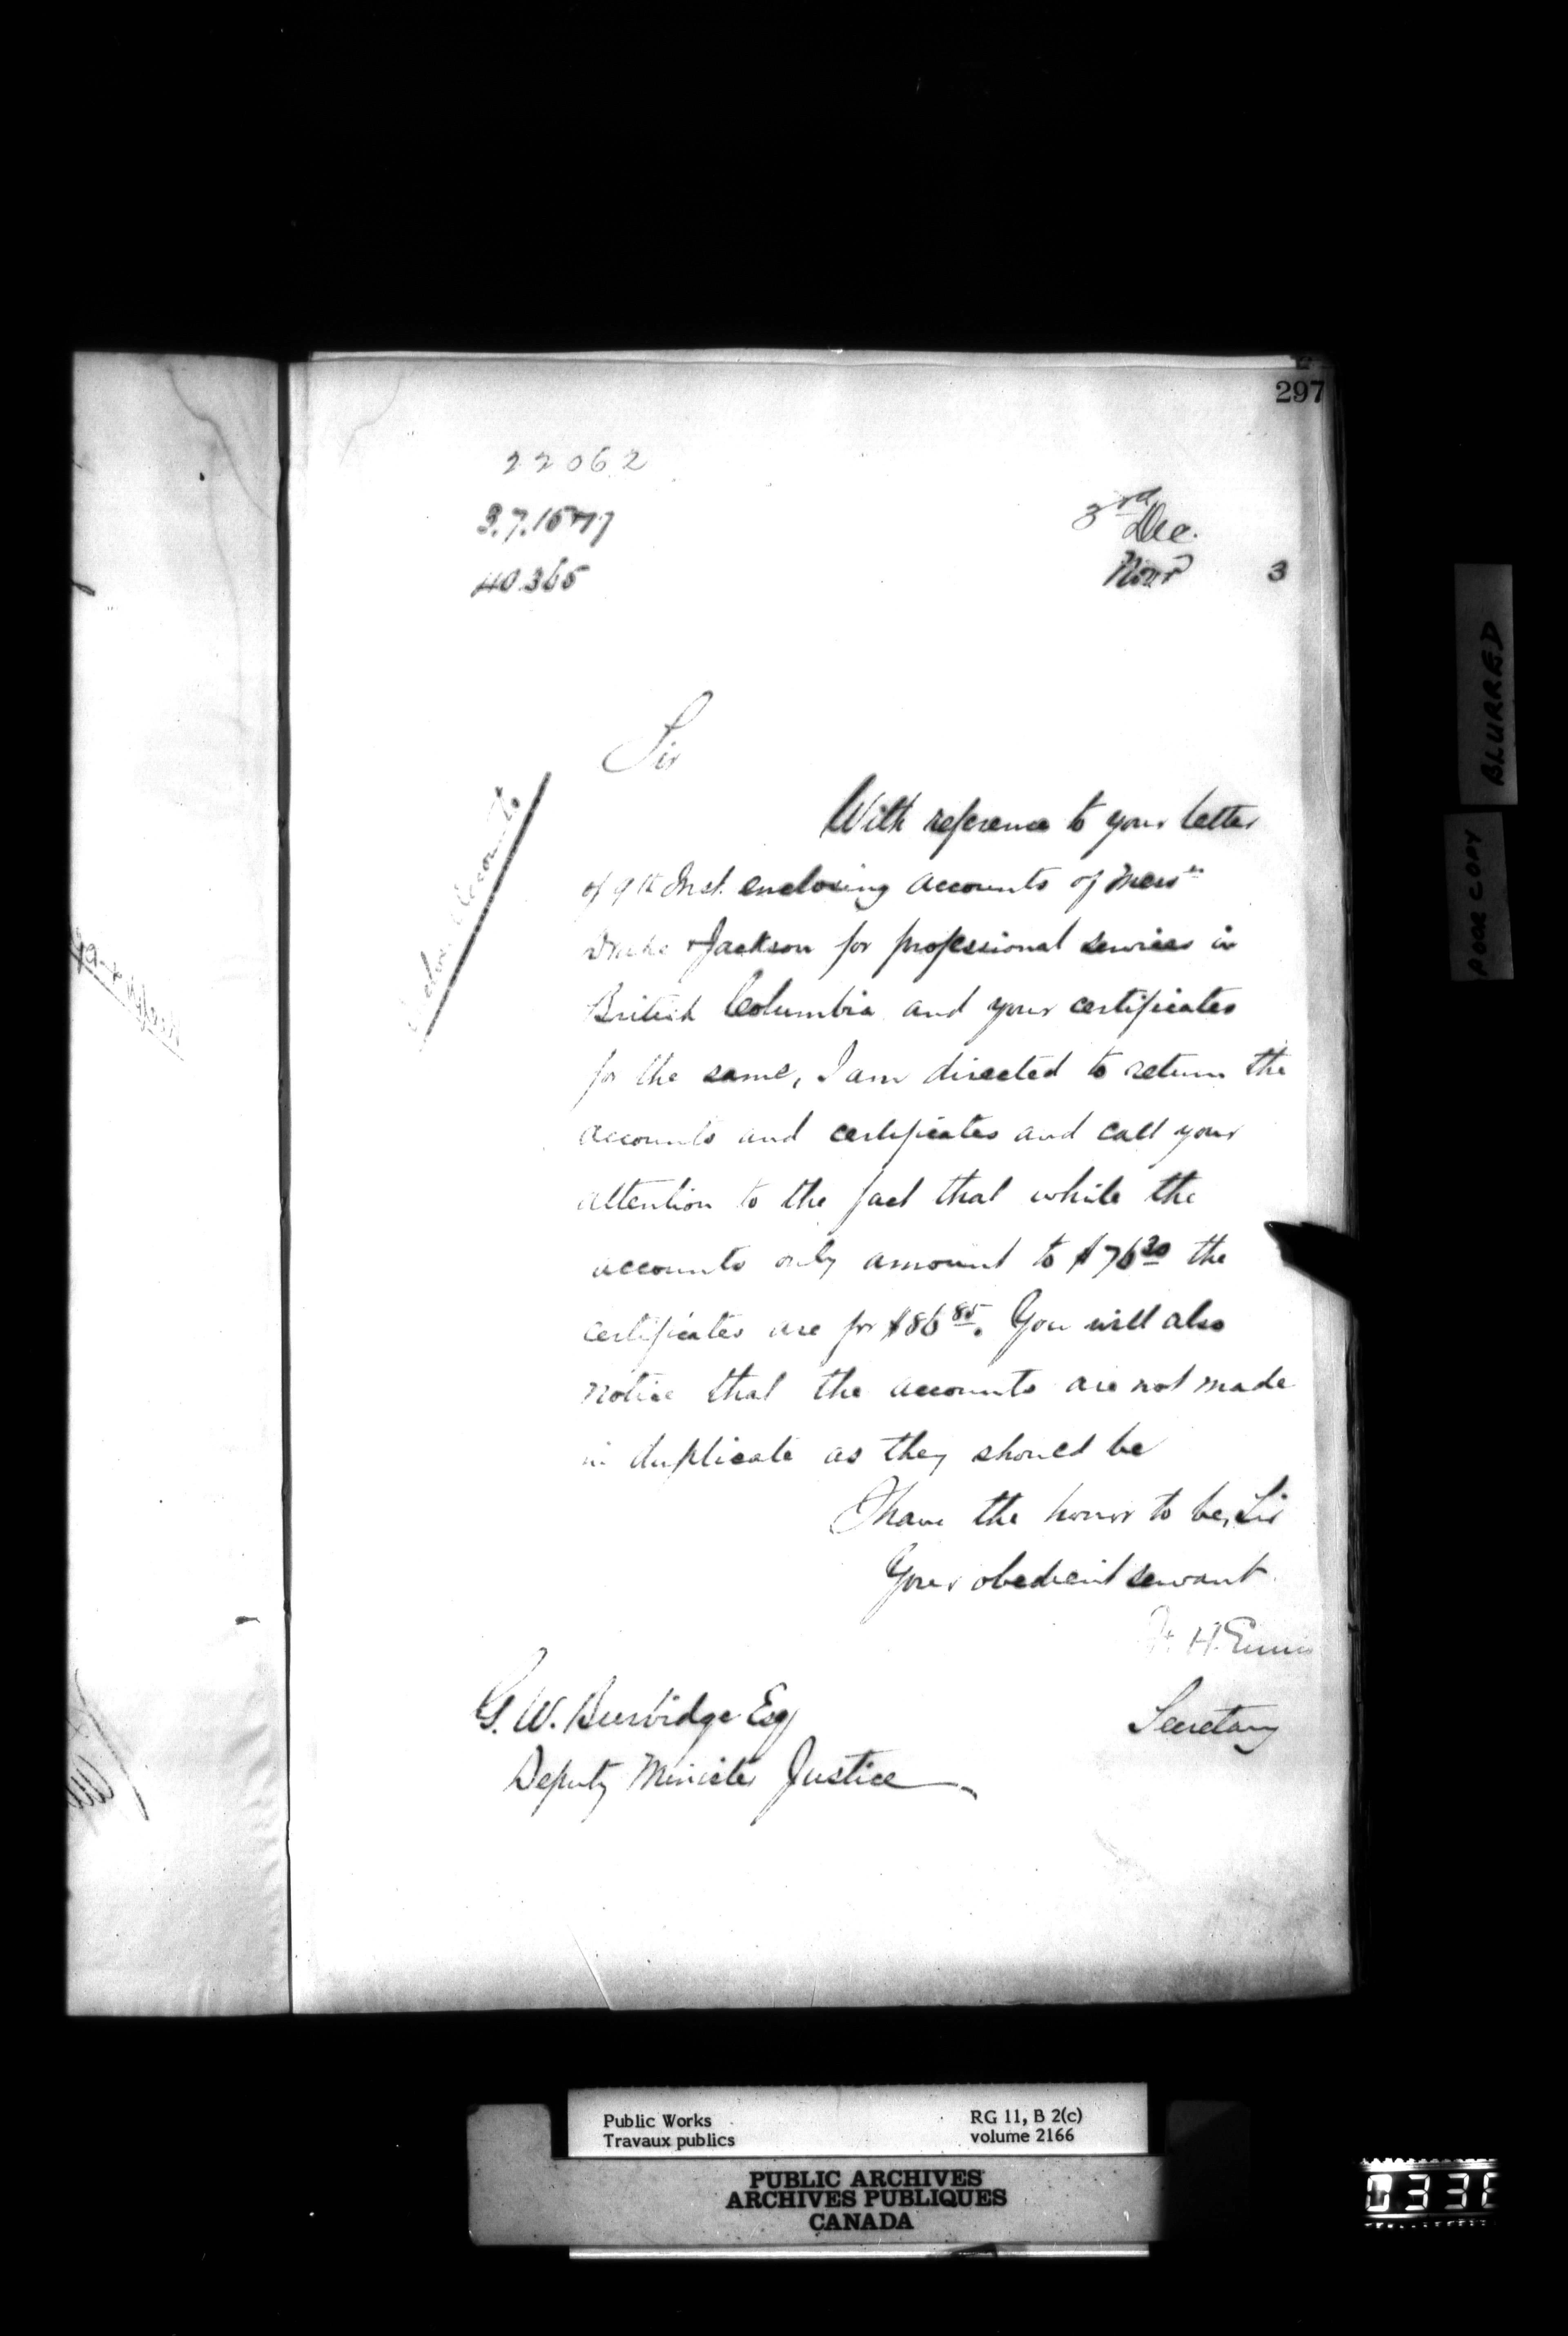 297
22062
40.365
3rd Dec.
Novr 3
Sir
With reference to your letter
of 9th Inst. enclosing accounts of Messrs
Drake & Jackson for professional services in
British Columbia and your certificates
for the same, I am directed to return the
accounts and certificates and call your
attention to the fact that while the
accounts only amount to $76 30 the
certificates are for $86 85. You will also
notice that the accounts are not made
in duplicate as they should be
I have the honor to be, Sir
Your obedient servant
H. Ennis
Secretary
G. W. Burbidge Esq
Deputy Minister Justice
BLURRED
POOR COPY
Public Works
Travaux publics
RG 11, B 2(c)
volume 2166
PUBLIC ARCHIVES
ARCHIVES PUBLIQUES
CANADA